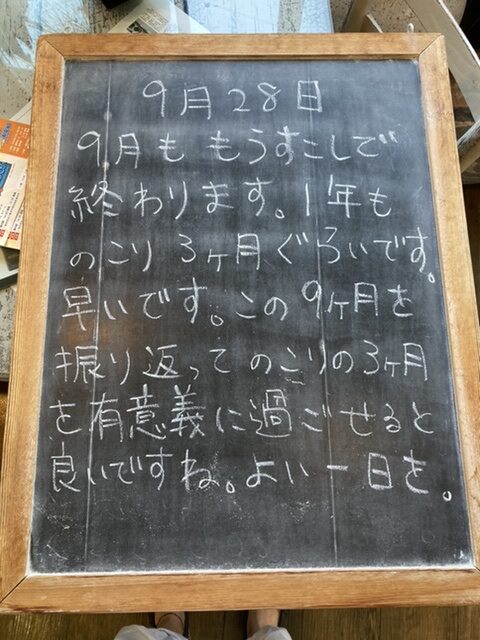 9月28日
9月も もうすこしで
終わります。1年も
のこり 3ヶ月ぐらいです。
早いです。この 9ヶ月を
振り返って のこりの3ヶ月
を有意義に過ごせると
良いですね。よい一日を。